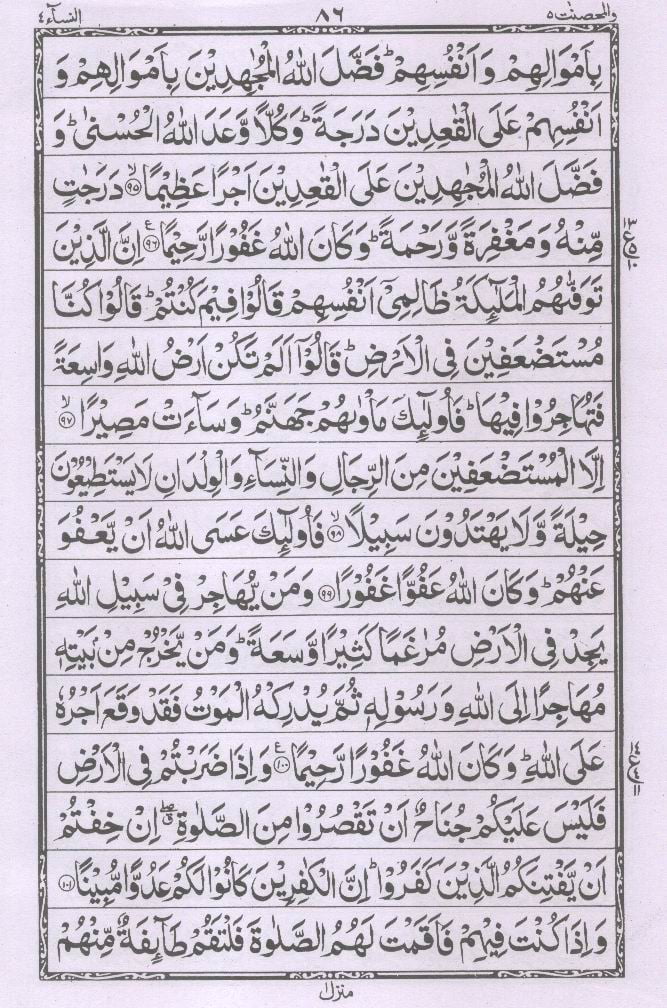 والمحصنت ٥ ٨٦ النسآء ٤
بِاَمْوَالِهِمْ وَاَنْفُسِهِمْ ؕ فَضَّلَ اللّٰهُ الْمُجٰهِدِيْنَ بِاَمْوَالِهِمْ وَ
اَنْفُسِهِمْ عَلَى الْقٰعِدِيْنَ دَرَجَةً ؕ وَكُلًّا وَّعَدَ اللّٰهُ الْحُسْنٰى ؕ وَ
فَضَّلَ اللّٰهُ الْمُجٰهِدِيْنَ عَلَى الْقٰعِدِيْنَ اَجْرًا عَظِيْمًا ۙ‏﴿۹۵﴾ دَرَجٰتٍ
مِّنْهُ وَمَغْفِرَةً وَّرَحْمَةً ؕ وَكَانَ اللّٰهُ غَفُوْرًا رَّحِيْمًا ﴿۹۶﴾ع اِنَّ الَّذِيْنَ
تَوَفّٰٮهُمُ الْمَلٰٓئِكَةُ ظَالِمِىْۤ اَنْفُسِهِمْ قَالُوْا فِيْمَ كُنْتُمْ ؕ قَالُوْا كُنَّا
مُسْتَضْعَفِيْنَ فِى الْاَرْضِ ؕ قَالُوْۤا اَلَمْ تَكُنْ اَرْضُ اللّٰهِ وَاسِعَةً
فَتُهَاجِرُوْا فِيْهَا ؕ فَاُولٰٓئِكَ مَاْوٰٮهُمْ جَهَنَّمُ ؕ وَسَآءَتْ مَصِيْرًا ۙ‏﴿۹۷﴾
اِلَّا الْمُسْتَضْعَفِيْنَ مِنَ الرِّجَالِ وَالنِّسَآءِ وَالْوِلْدَانِ لَا يَسْتَطِيْعُوْنَ
حِيْلَةً وَّلَا يَهْتَدُوْنَ سَبِيْلًا ۙ‏﴿۹۸﴾ فَاُولٰٓئِكَ عَسَى اللّٰهُ اَنْ يَّعْفُوَ
عَنْهُمْ ؕ وَكَانَ اللّٰهُ عَفُوًّا غَفُوْرًا ﴿۹۹﴾ وَمَنْ يُّهَاجِرْ فِىْ سَبِيْلِ اللّٰهِ
يَجِدْ فِى الْاَرْضِ مُرٰغَمًا كَثِيْرًا وَّسَعَةً ؕ وَمَنْ يَّخْرُجْ مِنْۢ بَيْتِهٖ
مُهَاجِرًا اِلَى اللّٰهِ وَرَسُوْلِهٖ ثُمَّ يُدْرِكْهُ الْمَوْتُ فَقَدْ وَقَعَ اَجْرُهٗ
عَلَى اللّٰهِ ؕ وَكَانَ اللّٰهُ غَفُوْرًا رَّحِيْمًا ﴿۱۰۰﴾ع وَاِذَا ضَرَبْتُمْ فِى الْاَرْضِ
فَلَيْسَ عَلَيْكُمْ جُنَاحٌ اَنْ تَقْصُرُوْا مِنَ الصَّلٰوةِ ۖۗ اِنْ خِفْتُمْ
اَنْ يَّفْتِنَكُمُ الَّذِيْنَ كَفَرُوْا ؕ اِنَّ الْكٰفِرِيْنَ كَانُوْا لَكُمْ عَدُوًّا مُّبِيْنًا ﴿۱۰۱﴾
وَاِذَا كُنْتَ فِيْهِمْ فَاَقَمْتَ لَهُمُ الصَّلٰوةَ فَلْتَقُمْ طَآئِفَةٌ مِّنْهُمْ
منزل ١